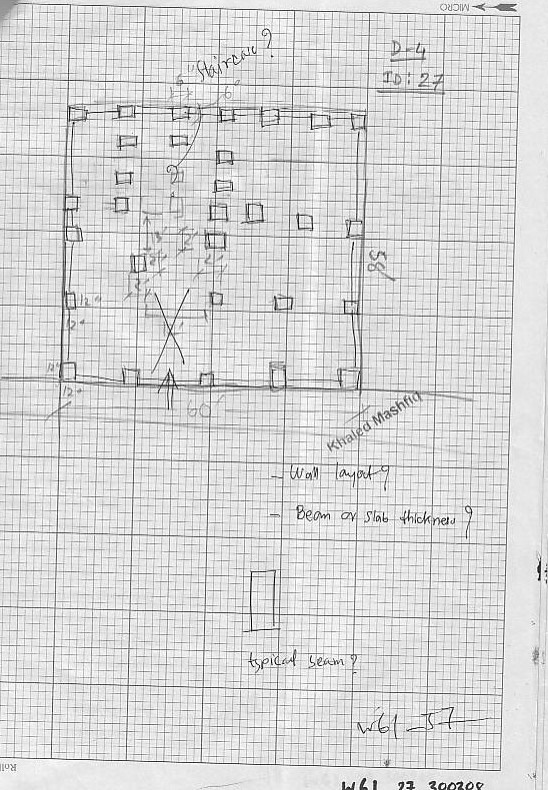 MICRO
D-4
ID: 27
Staircase?
6"
6"
58'
12"
12"
12"
12"
60'
Khaled Mashfiq
- Wall layout?
- Beam or slab thickness?
typical beam?
W61_37
W61_27_300208